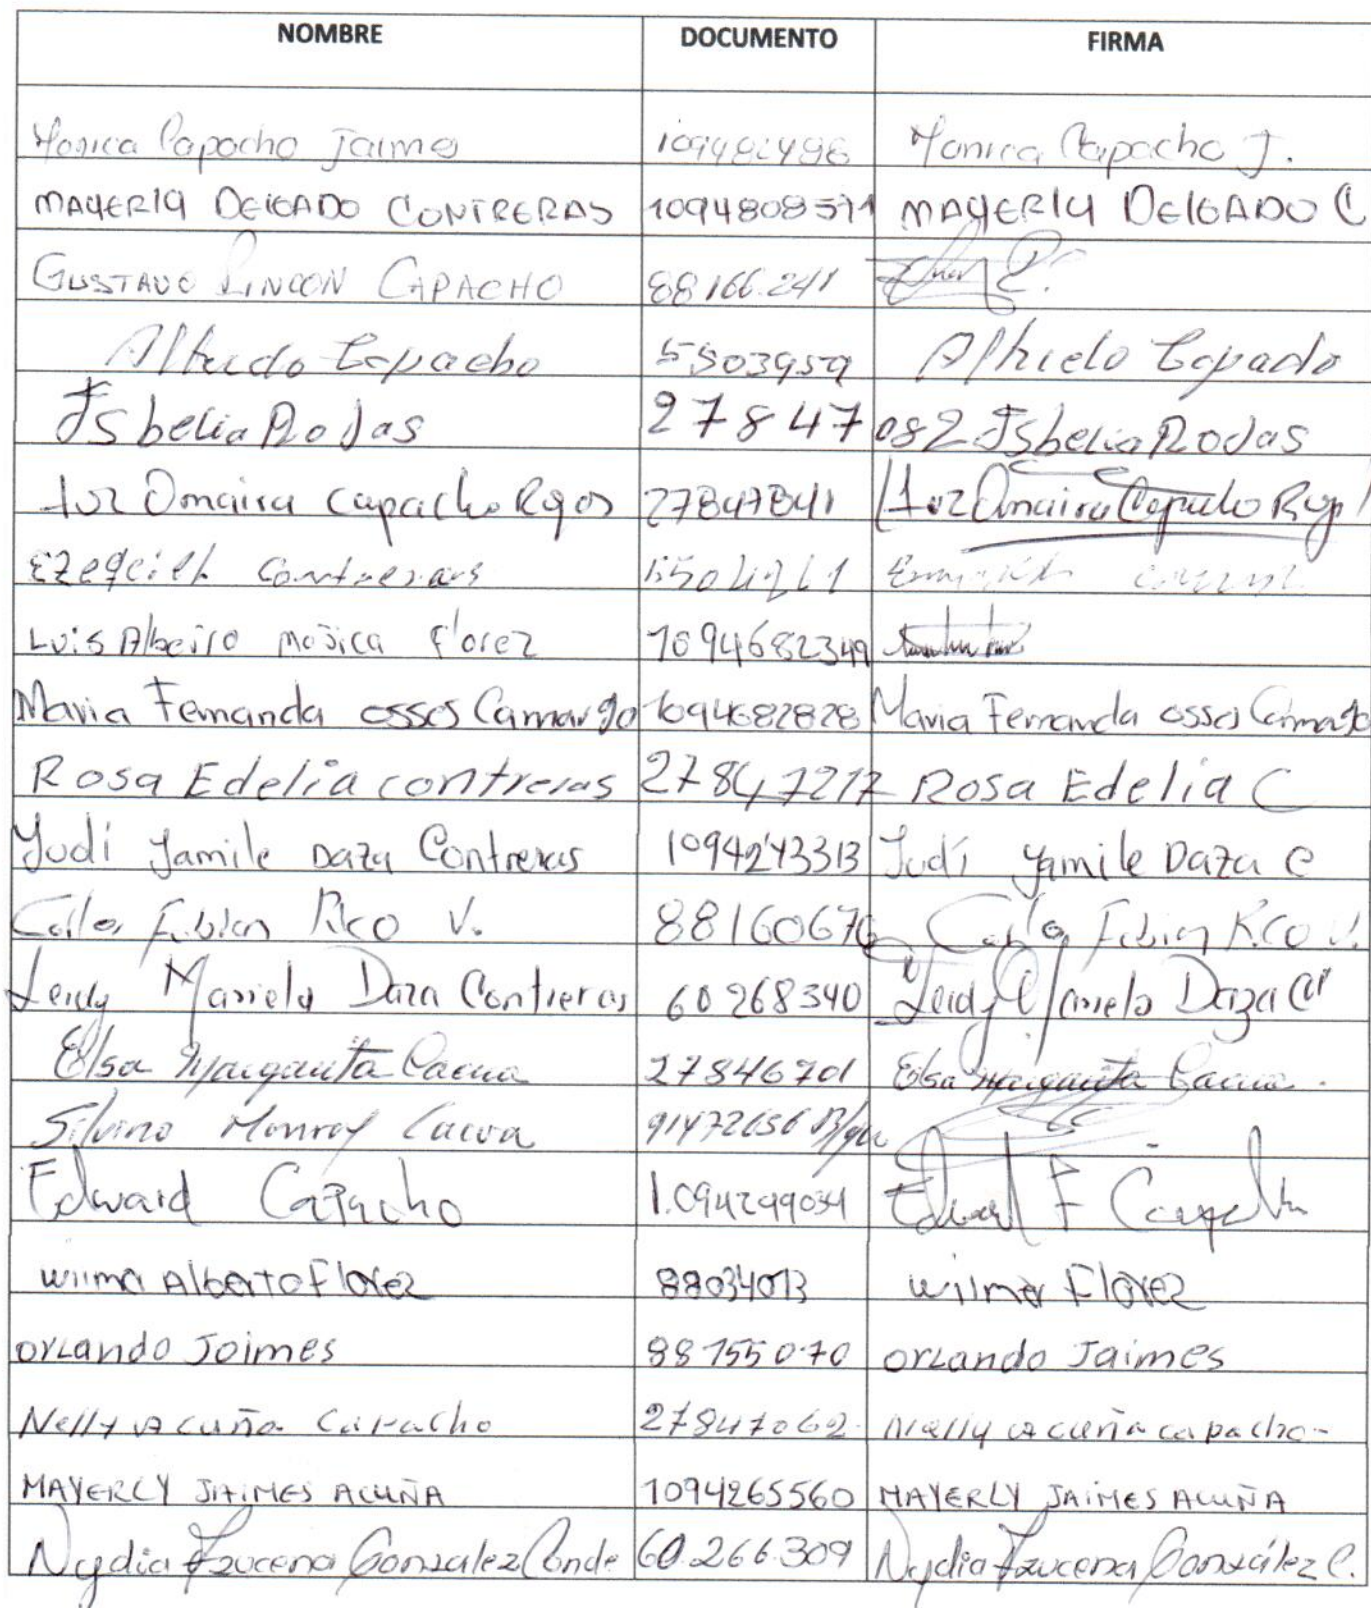 NOMBRE DOCUMENTO FIRMA
Monica Capacho Jaimes 109482498 Monica Capacho J.
MAYERLY DELGADO CONTRERAS 1094808571 MAYERLY DELGADO C
GUSTAVO RINCON CAPACHO 88166.241
Alfredo Capacho 5503959 Alfredo Capacho
Isbelia Rodas 27847082 Isbelia Rodas
Luz Omaira Capacho Rojas 27847841 Luz Omaira Capacho
Ezequiel Contreras
Luis Albeiro mojica florez 1094682349
Maria Fernanda osses Camargo 1094682828 Maria Fernanda osses Camargo
Rosa Edelia contreras 27847217 Rosa Edelia C
Yudi Yamile Daza Contreras 1094243313 Yudi Yamile Daza C
Carlos Fabian Rico V. 88160676 Carlos Fabian Rico V.
Leidy Mariela Daza Contreras 60268340 Leidy Mariela Daza
Elsa Margarita Cacua 27846701 Elsa Margarita Cacua.
Silvino Monroy Cacua 91472656 B/ga
Edward Capacho 1.094249034 Edward F Capacho
wilmar Alberto Florez 88034013 wilmer Florez
orlando Jaimes 88155070 orlando Jaimes
Nelly Acuña Capacho 27847062 Nelly Acuña capacho-
MAYERLY JAIMES ACUÑA 1094265560 MAYERLY JAIMES ACUÑA
Nydia Azucena Gonzalez Conde 60.266.309 Nydia Azucena González C.